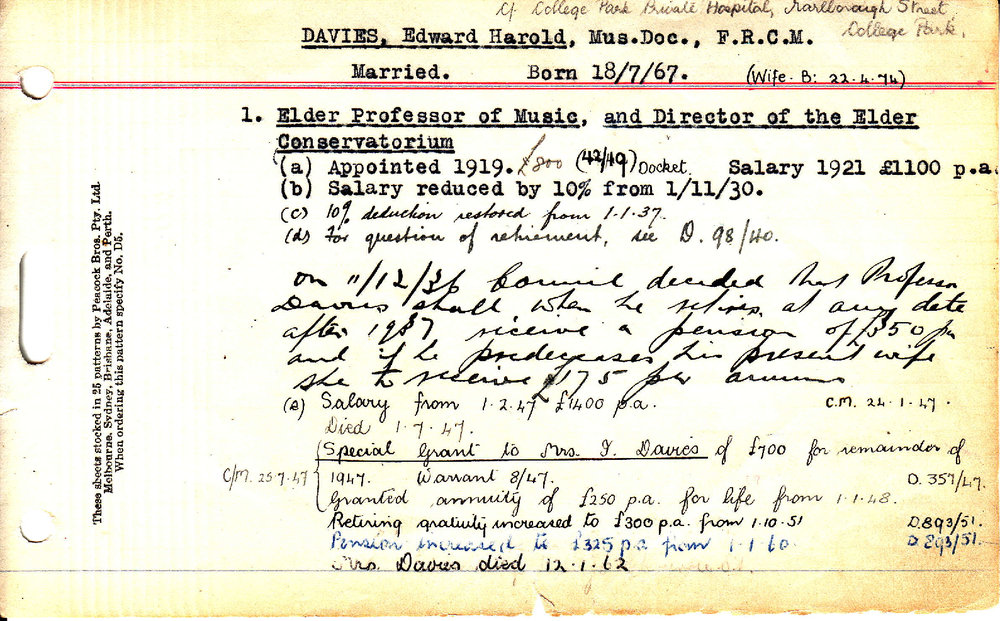 C/- College Park Private Hospital, Marlborough Street,
College Park.
DAVIES, Edward Harold, Mus.Doc., F.R.C.M.
Married. Born 18/7/67. (Wife. B: 22.4.74)
1. Elder Professor of Music, and Director of the Elder
Conservatorium
(a) Appointed 1919. £800 (42/19) Docket. Salary 1921 £1100 p.a.
(b) Salary reduced by 10% from 1/11/30.
(c) 10% deduction restored from 1.1.37.
(d) For question of retirement, see D. 98/40.
On 11/12/36 Council decided that Professor
Davies shall when he retires at any date
after 1937 receive a pension of £350 pa
and if he predeceases his present wife
she to receive £175 per annum
(e) Salary from 1.2.47 £1400 p.a. C.M. 24.1.47.
Died 1.7.47.
Special Grant to Mrs. I. Davies of £700 for remainder of
C/M. 25.7.47 1947. Warrant 8/47. D. 357/47.
Granted annuity of £250 p.a. for life from 1.1.48.
Retiring gratuity increased to £300 p.a. from 1.10.51 D.893/51.
Pension increased to £325 p.a from 1.1.60. D.893/51.
Mrs. Davies died 12.1.62
These sheets stocked in 25 patterns by Peacock Bros. Pty. Ltd.
Melbourne, Sydney, Brisbane, Adelaide, and Perth.
When ordering this pattern specify No. D5.